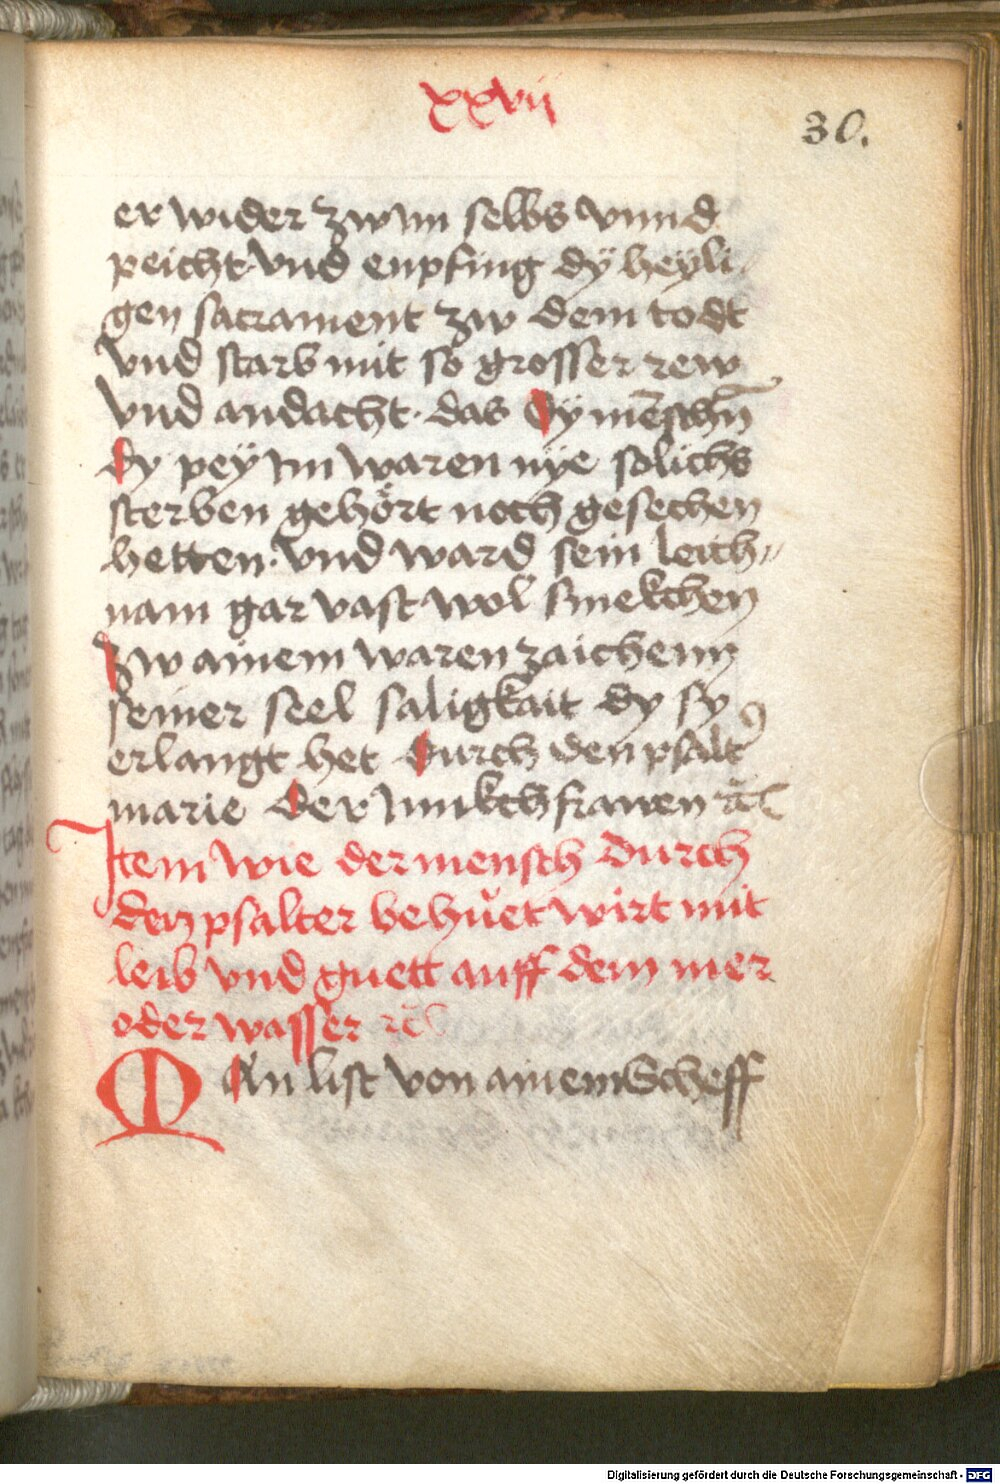 xxvii
30.
er wider zw im selbs vnnd
peicht vnd enpfing dÿ heyli
gen sacrament zw dem todt
vnd starb mit so grosser rew
vnd andacht · das Dy mēschn̄
Dy peÿ im waren nÿe solichs
sterben gehört noch gesechen
hetten · vnd ward sein leich„
nam gar vast wol smekchen
Zw ainem waren zaichenn
seiner seel saligkait dy sy
erlangt het Durch den psalt͛
marie Der junkchfrawen rc̄
Item wie der mensch Durch
den psalter behuet wirt mit
leib vnd guett auff dem mer
oder wasser rc̄
MAn list von ainem Scheff
Digitalisierung gefördert durch die Deutsche Forschungsgemeinschaft - DFG